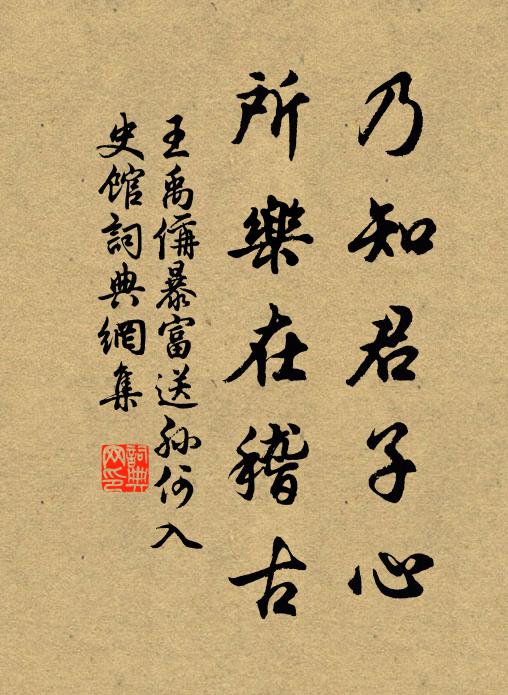 乃知君子心
所樂在稽古
王禹偁暴富送孫何入
史館詞典網集
詞典
网印